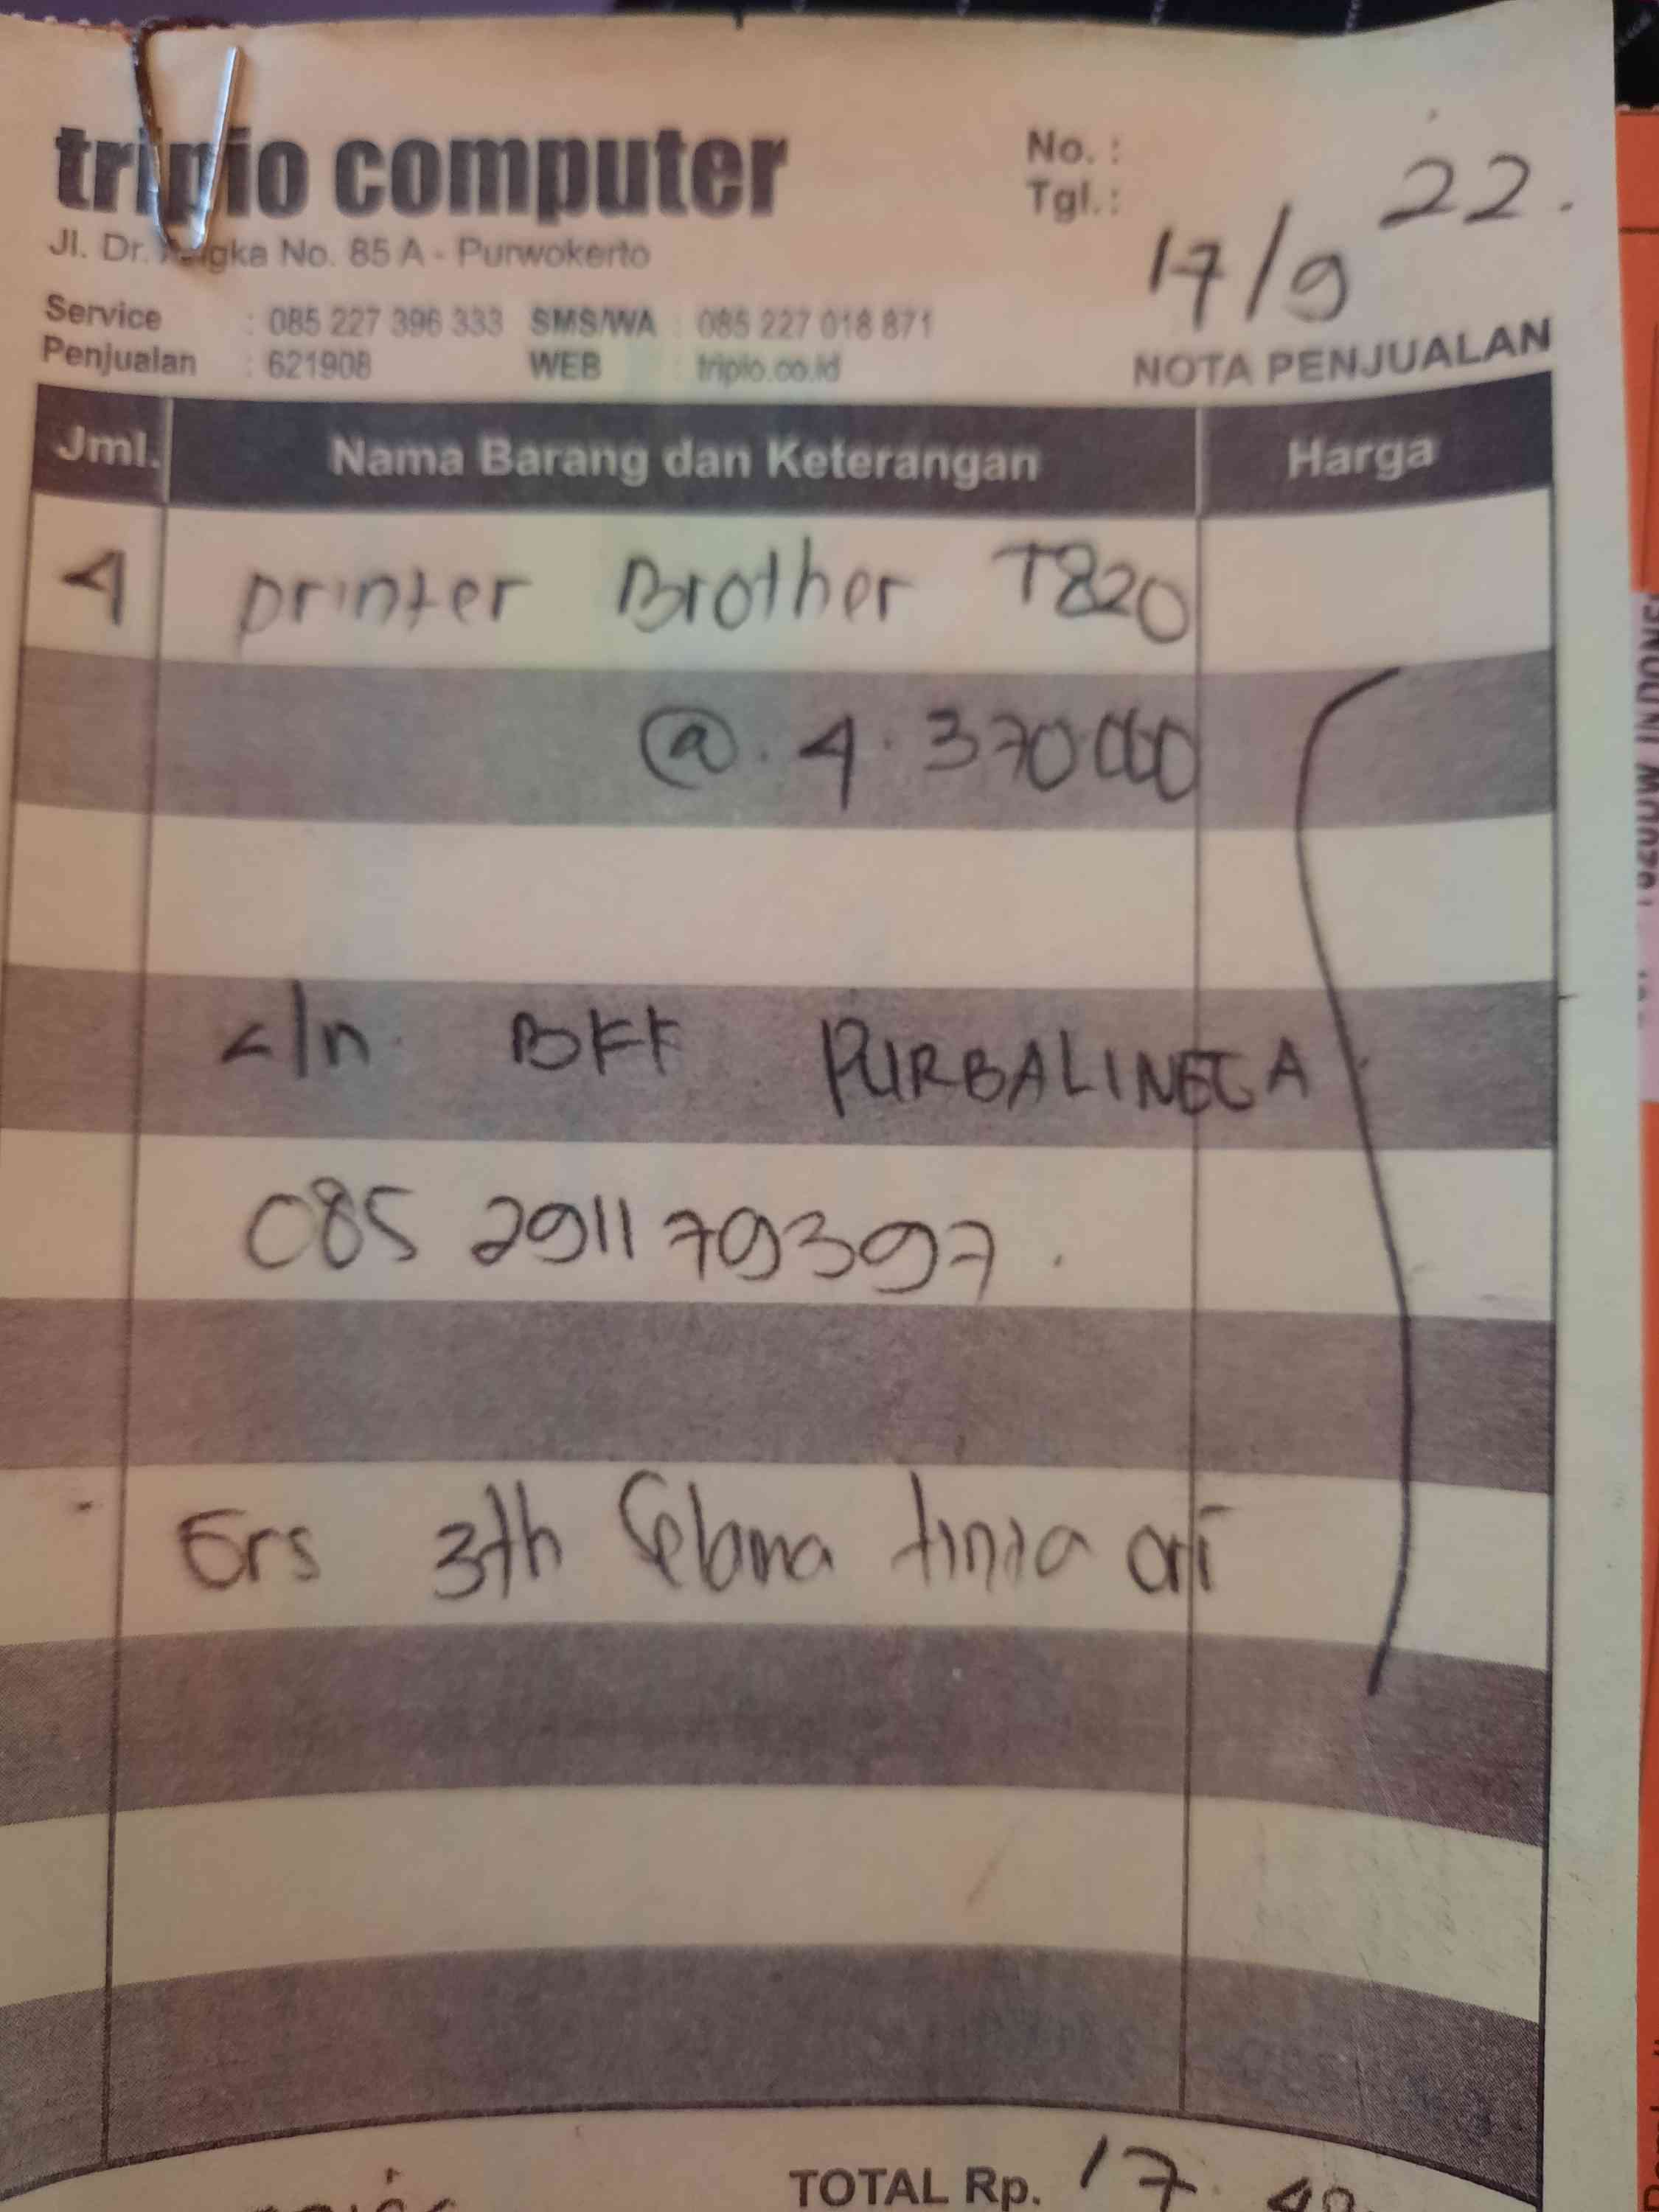 tripio computer
No. :
Tgl. :
17/9 22.
Jl. Dr. No. 85 A - Purwokerto
Service : 085 227 396 333 SMS/WA : 085 227 018 871
Penjualan : 621908 WEB : tripio.co.id
NOTA PENJUALAN
Jml. Nama Barang dan Keterangan Harga
4 printer Brother T820
@. 4.370.000
a/n BFF PURBALINGGA
085 291179397.
Grs 3th Selama tinta ori
TOTAL Rp. 17.